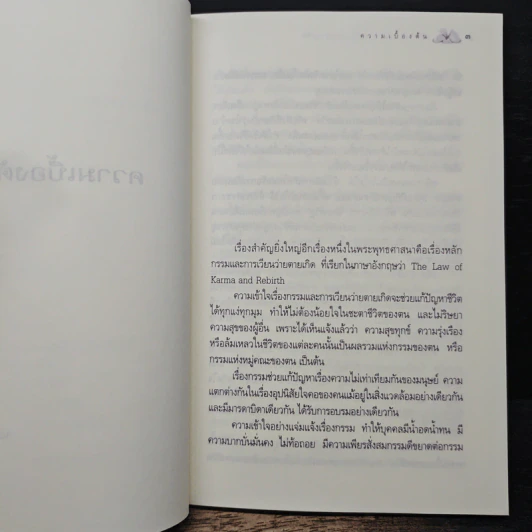 ความเบื้องต้น ๓
เรื่องสำคัญยิ่งใหญ่อีกเรื่องหนึ่งในพระพุทธศาสนาคือเรื่องหลัก
กรรมและการเวียนว่ายตายเกิด ที่เรียกในภาษาอังกฤษว่า The Law of
Karma and Rebirth
ความเข้าใจเรื่องกรรมและการเวียนว่ายตายเกิดจะช่วยแก้ปัญหาชีวิต
ได้ทุกแง่ทุกมุม ทำให้ไม่ต้องน้อยใจในชะตาชีวิตของตน และไม่ริษยา
ความสุขของผู้อื่น เพราะได้เห็นแจ้งแล้วว่า ความสุขทุกข์ ความรุ่งเรือง
หรือล้มเหลวในชีวิตของแต่ละคนนั้นเป็นผลรวมแห่งกรรมของตน หรือ
กรรมแห่งหมู่คณะของตน เป็นต้น
เรื่องกรรมช่วยแก้ปัญหาเรื่องความไม่เท่าเทียมกันของมนุษย์ ความ
แตกต่างกันในเรื่องอุปนิสัยใจคอของคนแม้อยู่ในสิ่งแวดล้อมอย่างเดียวกัน
และมีมารดาบิดาเดียวกัน ได้รับการอบรมอย่างเดียวกัน
ความเข้าใจอย่างแจ่มแจ้งเรื่องกรรม ทำให้บุคคลมีน้ำอดน้ำทน มี
ความบากบั่นมั่นคง ไม่ท้อถอย มีความเพียรสั่งสมกรรมดีขยาดต่อกรรม